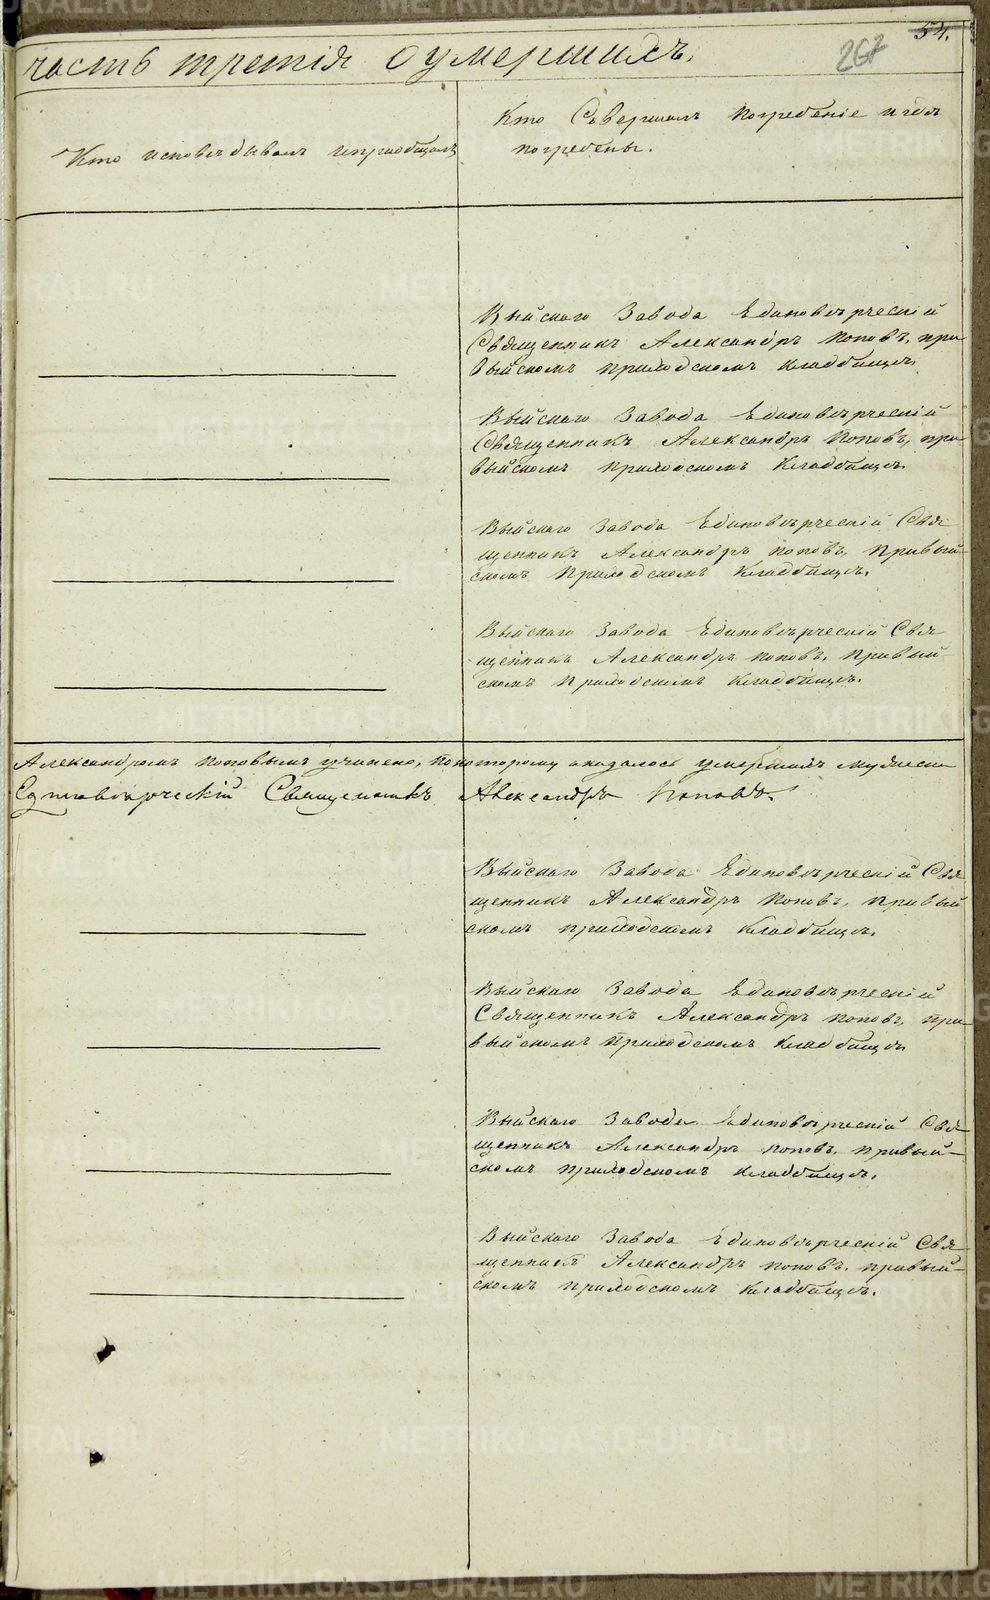 54.
267
часть третія о умершихъ.
Кто исповѣдывалъ и пріобщалъ
Кто Совершалъ погребеніе и гдѣ
погребены.
Выйскаго Завода Единовѣрческій
Священникъ Александръ Поповъ, при
выйскомъ приходскомъ кладбищѣ.
Выйскаго Завода Единовѣрческій
Священникъ Александръ Поповъ, при
выйскомъ приходскомъ кладбищѣ.
Выйскаго Завода Единовѣрческій Свя
щенникъ Александръ Поповъ, при вый-
скомъ приходскомъ кладбищѣ.
Выйскаго Завода Единовѣрческій Свя
щенникъ Александръ Поповъ, при вый
скомъ приходскомъ кладбищѣ.
Александромъ Поповымъ учинено, по которому оказалось умершихъ мужеска
Единовѣрческій Священникъ Александръ Поповъ.
Выйскаго Завода Единовѣрческій Свя
щенникъ Александръ Поповъ, при вый
скомъ приходскомъ кладбищѣ.
Выйскаго Завода Единовѣрческій
Священникъ Александръ Поповъ, при
выйскомъ приходскомъ кладбищѣ.
Выйскаго Завода Единовѣрческій Свя
щенникъ Александръ Поповъ, при вый-
скомъ приходскомъ кладбищѣ.
Выйскаго Завода Единовѣрческій Свя
щенникъ Александръ Поповъ, при вый-
скомъ приходскомъ кладбищѣ.
METRIKI.GASO-URAL.RU